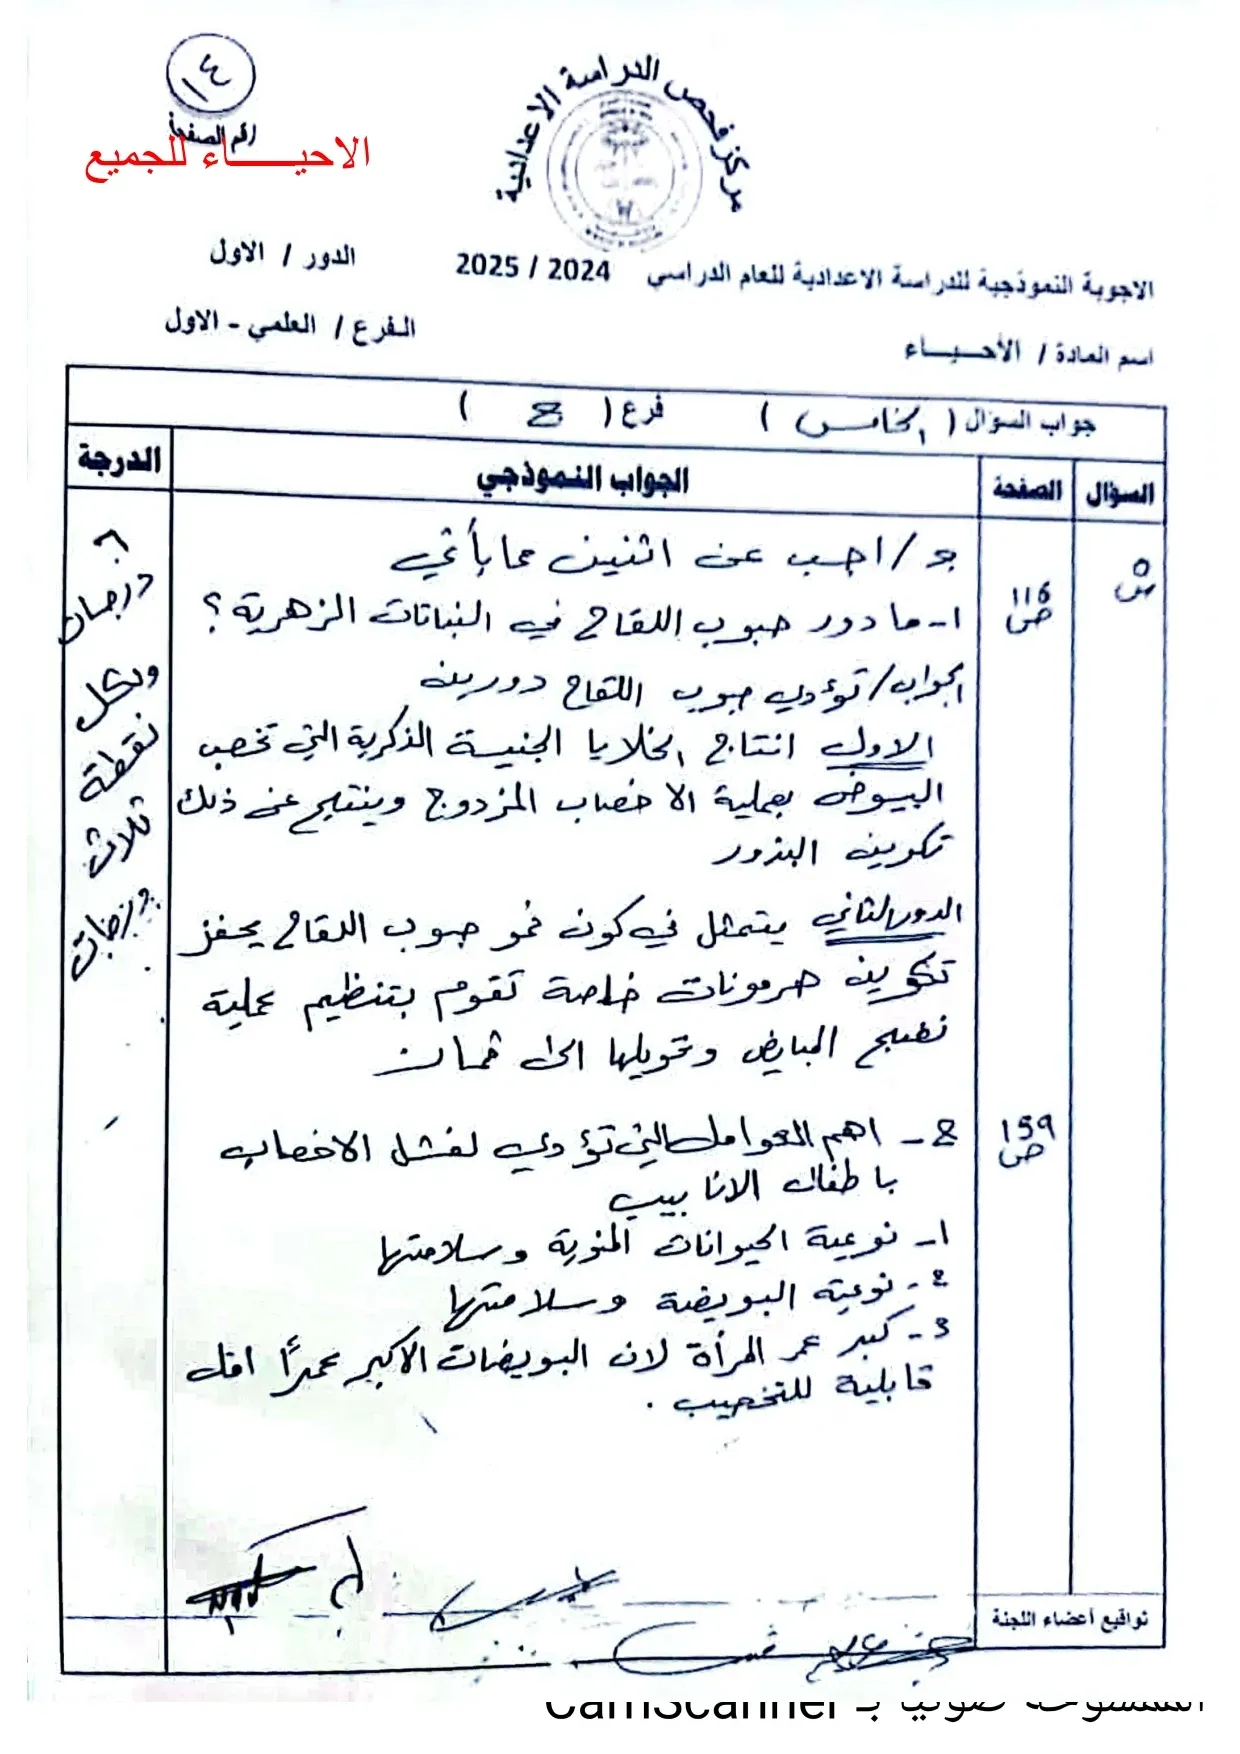 ١٤
رقم الصفحة
الاحيـــــاء للجميع
مركز فحص الدراسة الاعدادية
الاجوبة النموذجية للدراسة الاعدادية للعام الدراسي 2024 / 2025
الدور / الاول
اسم المادة / الأحـيـــاء
الفرع / العلمي - الاول
جواب السؤال ( الخامس ) فرع ( )
السؤال الصفحة الجواب النموذجي الدرجة
س٥
116 ص
ج/ اجب عن اثنين مما يأتي
١- ما دور حبوب اللقاح في النباتات الزهرية ؟
الجواب/ تؤدي حبوب اللقاح دورين
الاول انتاج الخلايا الجنسية الذكرية التي تخصب
البيوض بعملية الاخصاب المزدوج وينتج عن ذلك
تكوين البذور
الدور الثاني يتمثل في كون نمو حبوب اللقاح يحفز
تكوين هرمونات خاصة تقوم بتنظيم عملية
نضج المبايض وتحويلها الى ثمار
159 ص
2- اهم العوامل التي تؤدي لفشل الاخصاب
باطفال الانابيب
١- نوعية الحيوانات المنوية وسلامتها
2- نوعية البويضة وسلامتها
3- كبر عمر المرأة لان البويضات الاكبر عمراً اقل
قابلية للتخصيب .
٦
درجات
ولكل
نقطة
ثلاث
درجات
تواقيع أعضاء اللجنة
الممسوحة ضوئيا بـ CamScanner